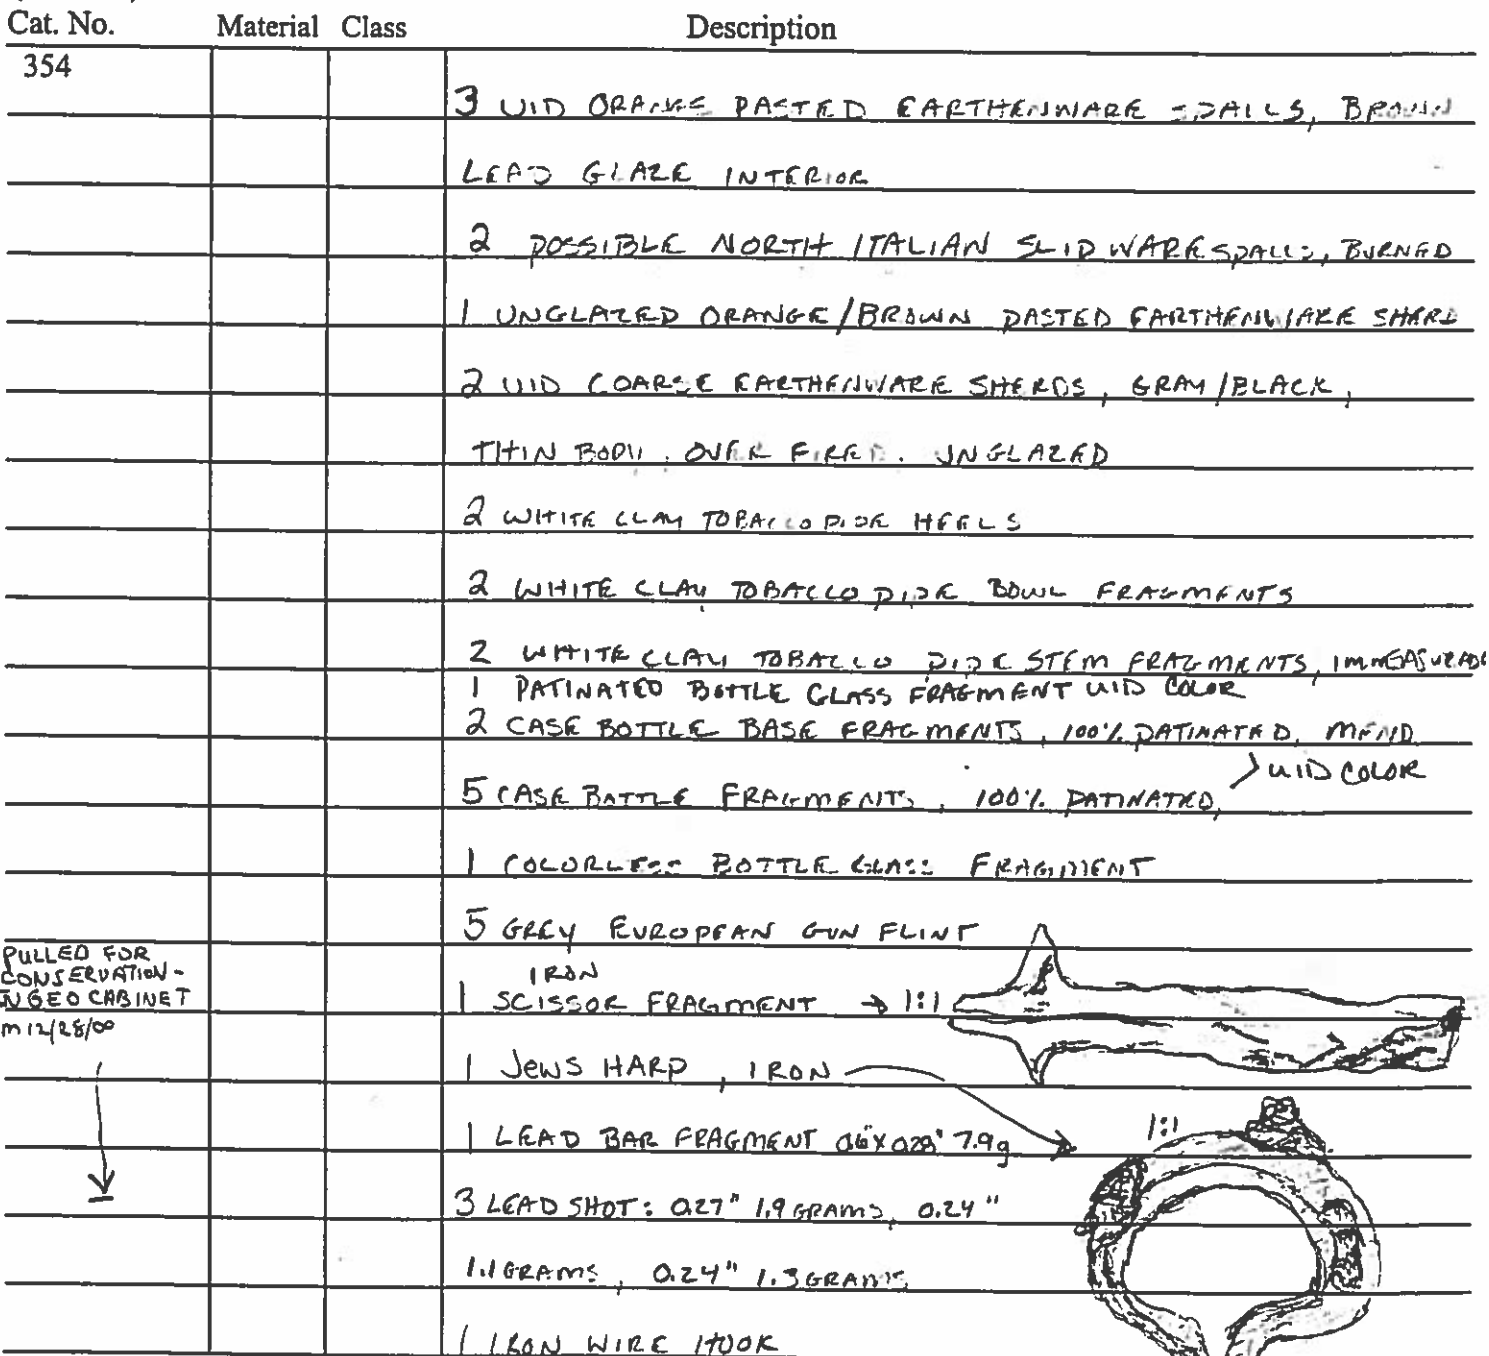 Cat. No. Material Class Description
354
3 UID ORANGE PASTED EARTHENWARE SPALLS, BROWN
LEAD GLAZE INTERIOR
2 POSSIBLE NORTH ITALIAN SLIPWARE SPALLS, BURNED
1 UNGLAZED ORANGE/BROWN PASTED EARTHENWARE SHERD
2 UID COARSE EARTHENWARE SHERDS, GRAY/BLACK,
THIN BODY, OVER FIRED, UNGLAZED
2 WHITE CLAY TOBACCO PIPE HEELS
2 WHITE CLAY TOBACCO PIPE BOWL FRAGMENTS
2 WHITE CLAY TOBACCO PIPE STEM FRAGMENTS,
1 PATINATED BOTTLE GLASS FRAGMENT UID COLOR
2 CASE BOTTLE BASE FRAGMENTS, 100% PATINATED, MEND
> UID COLOR
5 CASE BOTTLE FRAGMENTS, 100% PATINATED,
1 COLORLESS BOTTLE GLASS FRAGMENT
5 GREY EUROPEAN GUN FLINT
PULLED FOR
CONSERVATION -
IN GEO CABINET
m 12/28/00
IRON
1 SCISSOR FRAGMENT → 1:1
1 JEWS HARP, IRON
1:1
1 LEAD BAR FRAGMENT 0.6" X 0.28" 7.9g
3 LEAD SHOT: 0.27" 1.9 GRAMS, 0.24"
1.1 GRAMS, 0.24" 1.3 GRAMS
1 IRON WIRE HOOK